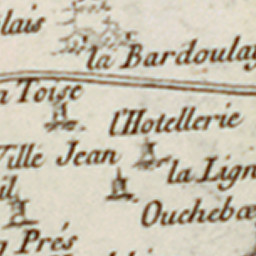 lais
la Bardoulay
a Toise
l'Hotellerie
Ville Jean
la Lign
il
Ouchebœ
Prés